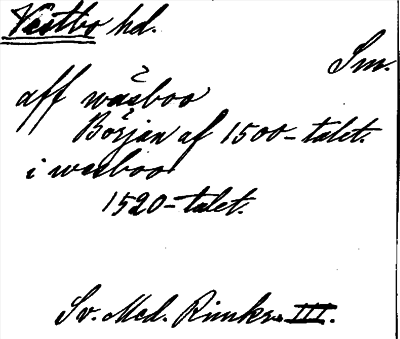 Västbo hd.
Sm.
aff wasboo
Början af 1500-talet.
i wasboo
1520-talet.
Sv. Med. Rimkr. III.